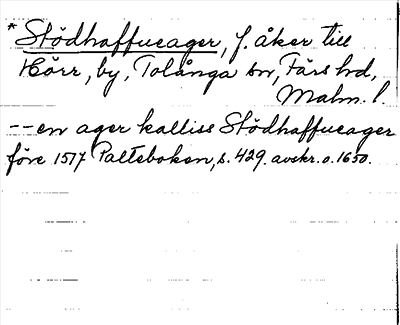 * Stödhaffueager, f. åker till
Hörr, by, Tolånga sn, Färs hd,
Malm. l.
-- en ager kalliss Stödhaffueager
före 1517 Palteboken, s. 429. avskr. o. 1650.